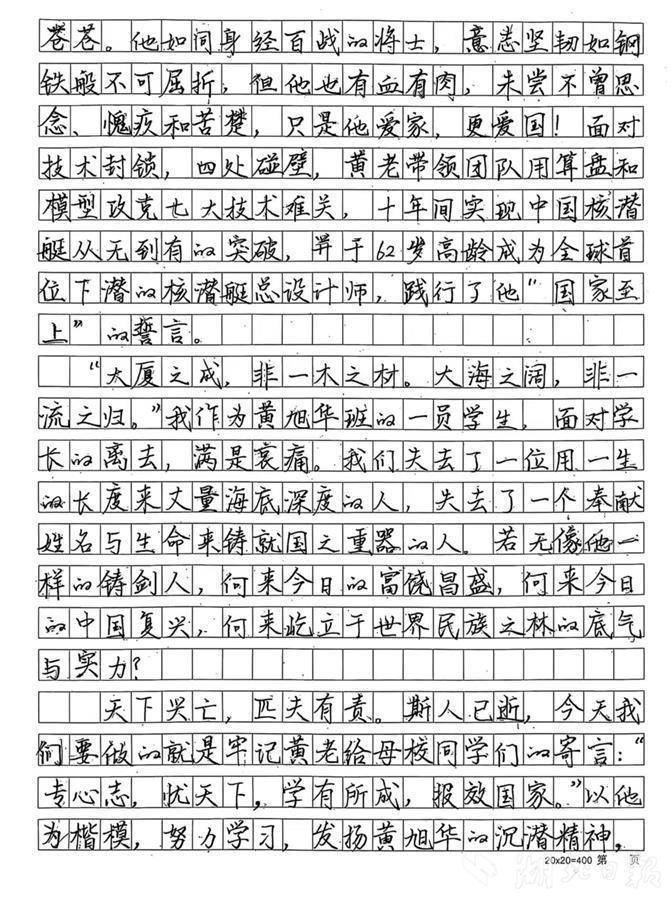 苍苍。他如同身经百战的将士，意志坚韧如钢
铁般不可屈折，但他也有血有肉，未尝不曾思
念、愧疚和苦楚，只是他爱家，更爱国！面对
技术封锁，四处碰壁，黄老带领团队用算盘和
模型攻克七大技术难关，十年间实现中国核潜
艇从无到有的突破，并于62岁高龄成为全球首
位下潜的核潜艇总设计师，践行了他“国家至
上”的誓言。
“大厦之成，非一木之材。大海之阔，非一
流之归。”我作为黄旭华班的一员学生，面对学
长的离去，满是哀痛。我们失去了一位用一生
的长度来丈量海底深度的人，失去了一个奉献
姓名与生命来铸就国之重器的人。若无像他一
样的铸剑人，何来今日的富饶昌盛，何来今日
的中国复兴，何来屹立于世界民族之林的底气
与实力？
天下兴亡，匹夫有责。斯人已逝，今天我
们要做的就是牢记黄老给母校同学们的寄言：“
专心志，忧天下，学有所成，报效国家。”以他
为楷模，努力学习，发扬黄旭华的沉潜精神，
20x20=400 第 页
湖北日报